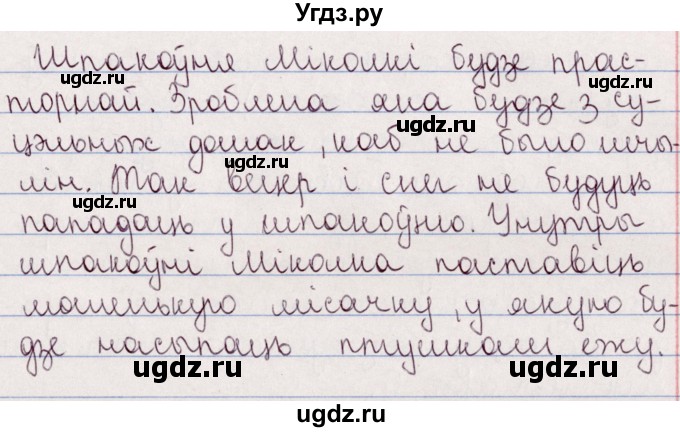 Угдз.ру
Шпакоўня Міколкі будзе прас-
торнай. Зроблена яна будзе з су-
цэльных дошак, каб не было шчы-
лін. Так вецер і снег не будуць
пападаць у шпакоўню. Унутры
шпакоўні Міколка паставіць
маленькую місачку, у якую бу-
дзе насыпаць птушкам ежу.
ugdz.ru
ugdz.ru
ugdz.ru
ugdz.ru
ugdz.ru
ugdz.ru
ugdz.ru
ugdz.ru
ugdz.ru